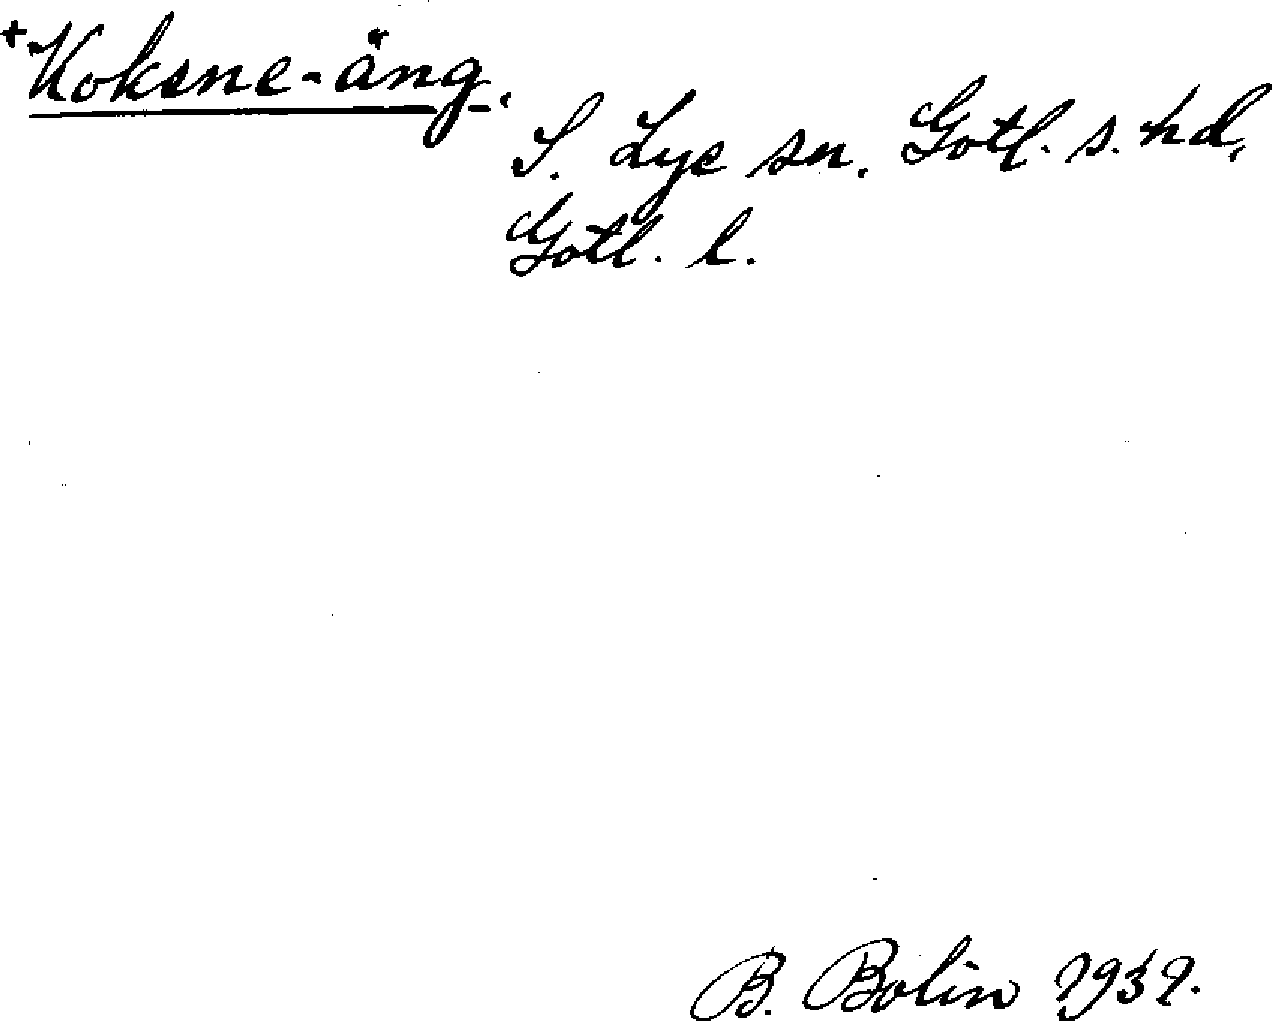 +Koksne-äng.
S. Lye sn. Gotl. s. hd,
Gotl. l.
B. Bolin 1939.